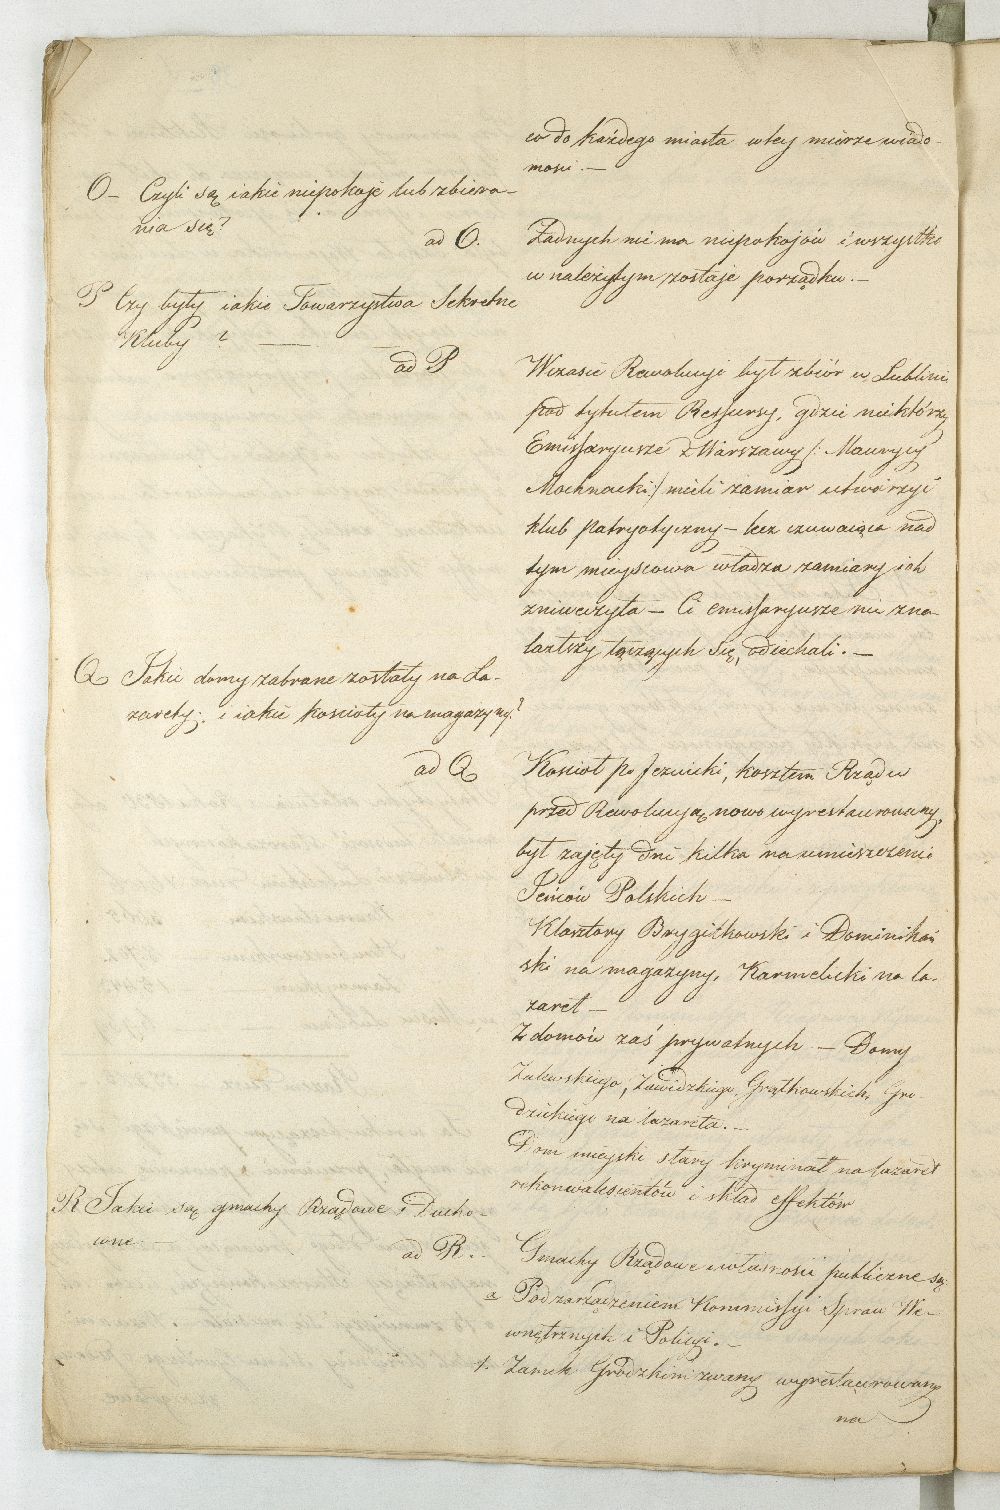 co do każdego miasta w tey mierze wiado-
mości. —
O — Czyli są iakie niepokoje lub zbiera-
nia się?
ad O. Żadnych nie ma niepokojów i wszystko
w należytym zostaje porządku. —
P Czy były iakie Towarzystwa Sekretne
Kluby ? —— —
ad P Wczasie Rewolucyi był zbiór w Lublinie
pod tytułem Ressursy, gdzie niektórzy
Emissaryusze z Warszawy /: Maurycy
Mochnacki :/ mieli zamiar utworzyć
klub patryotyczny — lecz czuwaiąca nad
tym mieyscowa władza zamiary ich
zniweczyła — Ci emissaryusze nie zna-
lazłszy łączących się, odiechali. —
Q Jakie domy zabrane zostały na La-
zarety; i iakie kościoły na magazyny?
ad Q Kościoł po Jezuicki, kosztem Rządu
przed Rewolucyą nowo wyrestaurowany,
był zajęty dni kilka na umieszczenie
Jeńców Polskich —
Klasztory Brygitkowski i Dominikań
ski na magazyny, Karmelicki na la-
zaret —
Z domów zaś prywatnych — Domy
Zalewskiego, Zawidzkiego, Grątkowskich, Gro-
dzickiego na lazareta. —
Dom mieyski stary kryminał na lazaret
rekonwalescientów i skład effektów
R Jakie są gmachy Rządowe i Ducho-
wne — —
ad R. Gmachy Rządowe i własności publiczne są
a Pod zarządzeniem Kommissyi Spraw We-
wnętrznych i Policyi. —
1. Zamek Grodzkim zwany wyrestaurowany
na